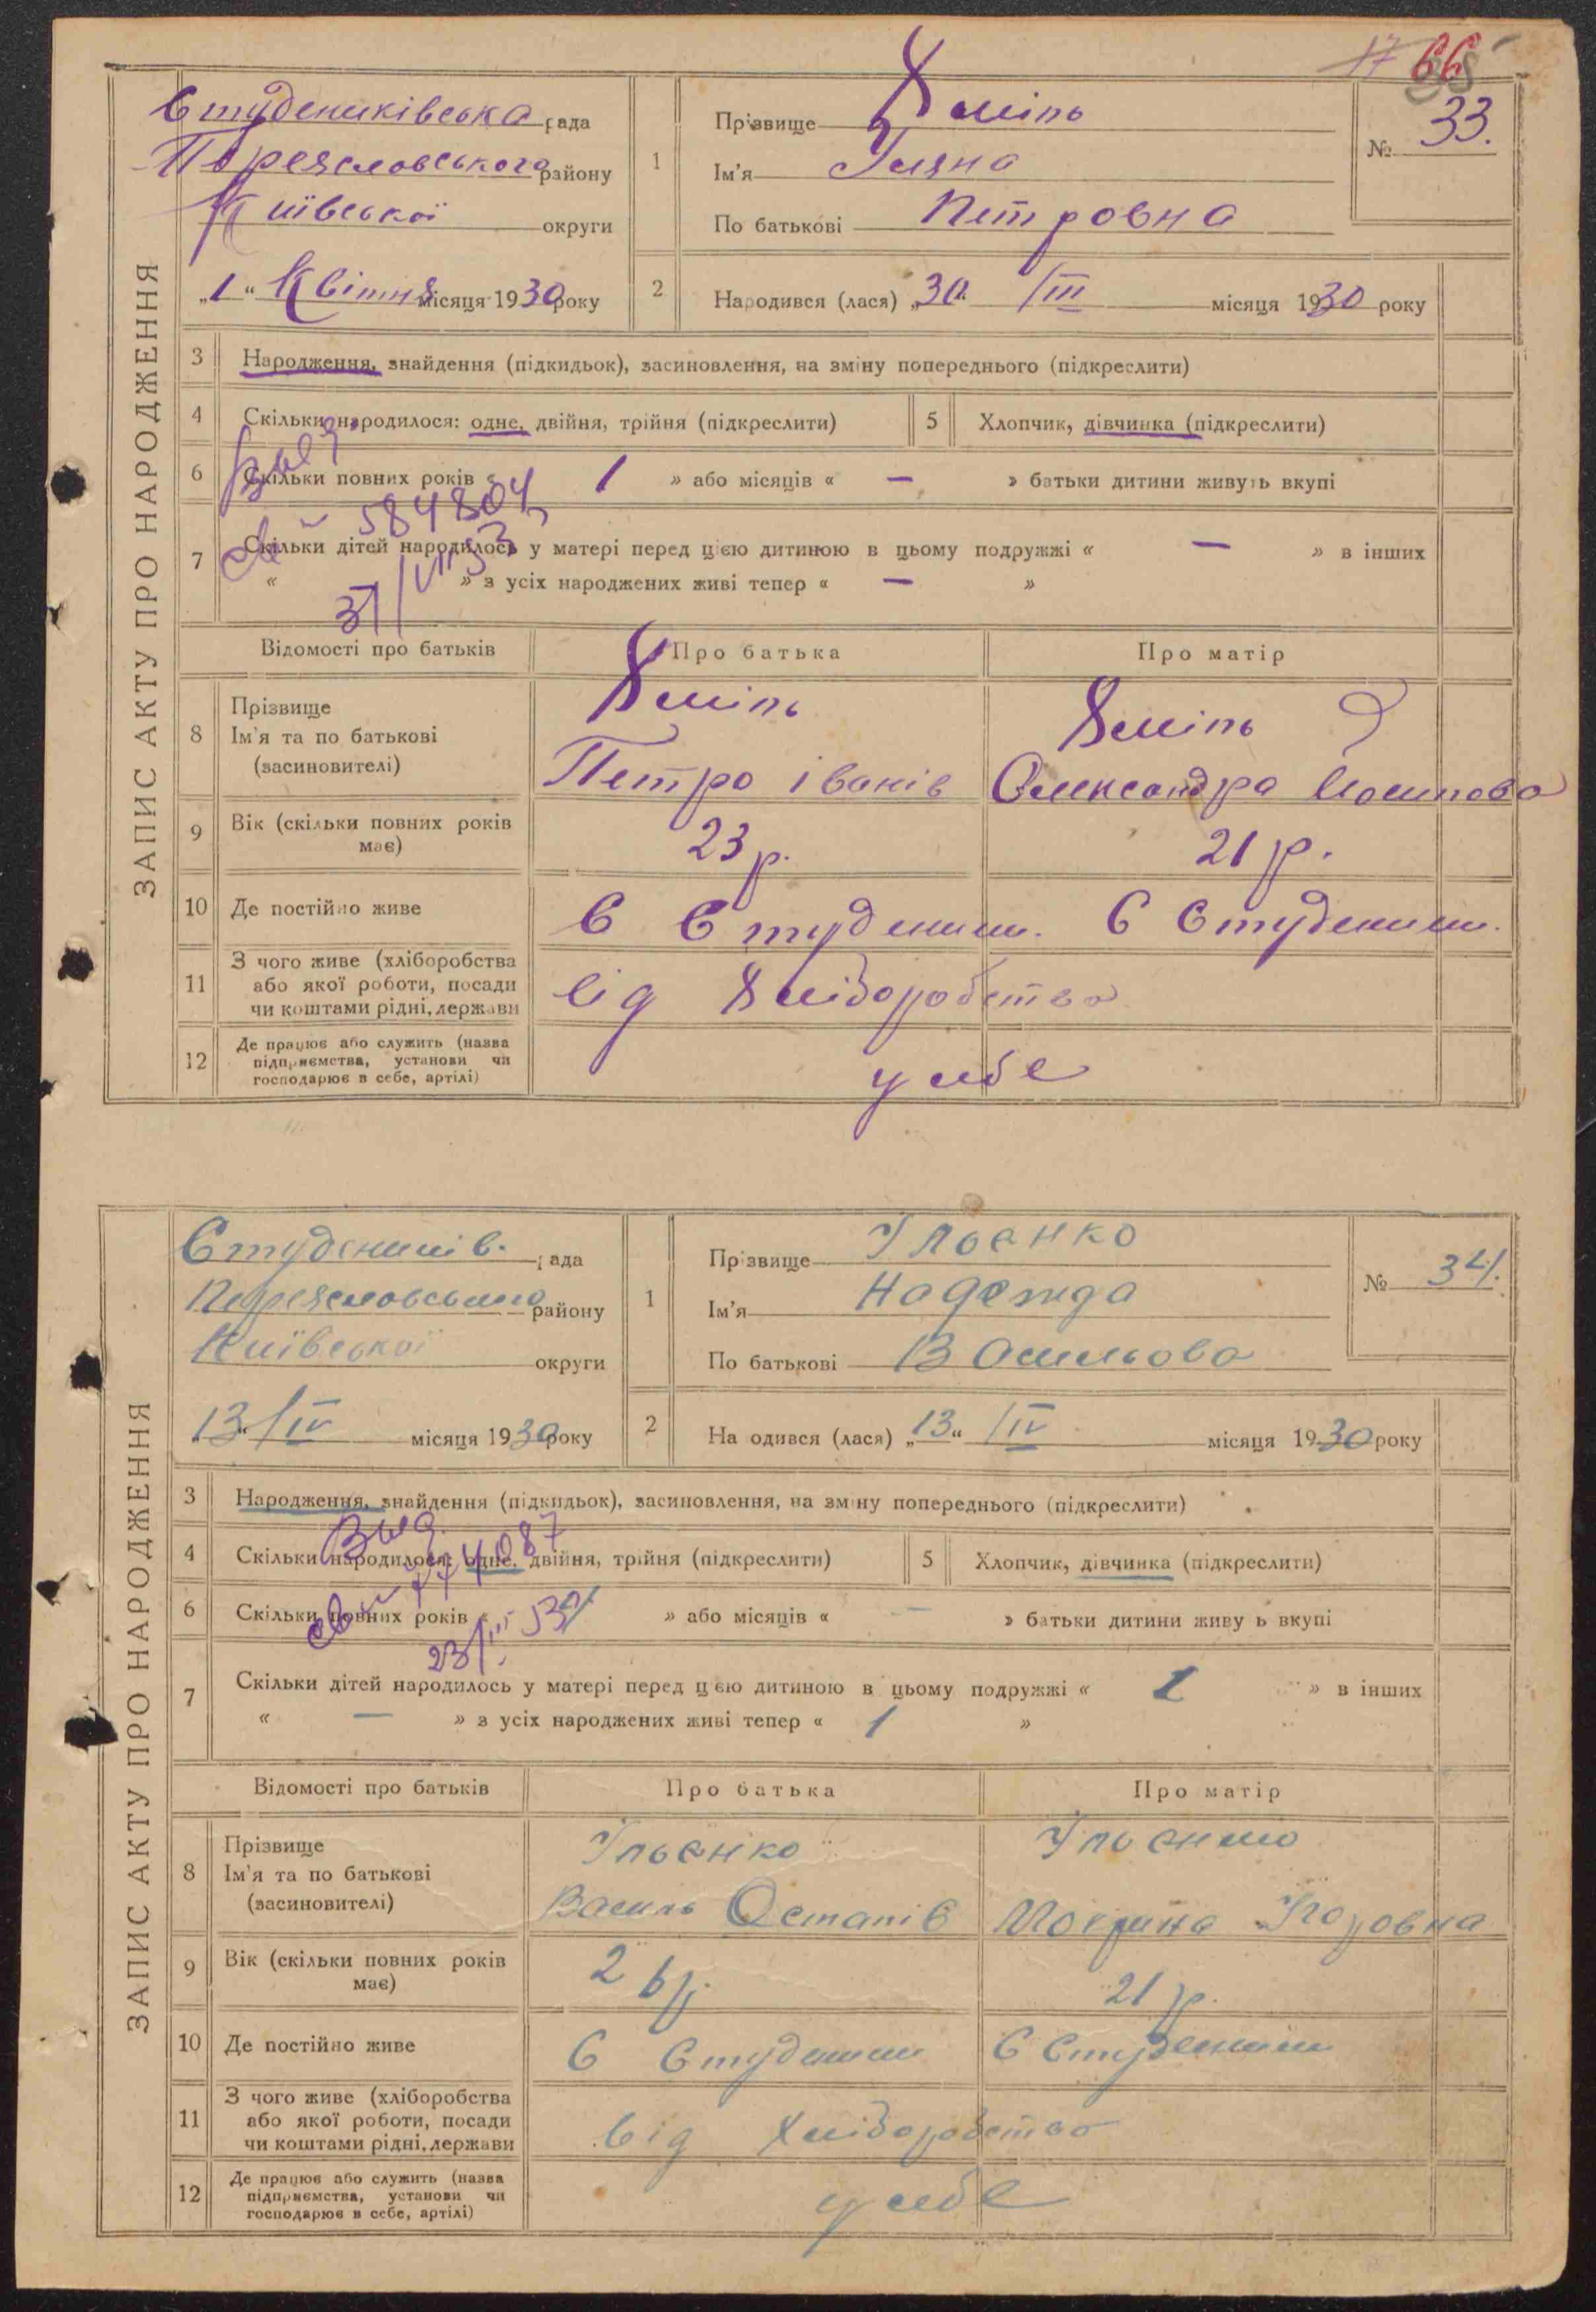 66
ЗАПИС АКТУ ПРО НАРОДЖЕННЯ
Студениківська рада
Переясловського району
Київської округи
„1“ Квітня місяця 1930 року
1
Прізвище Хміль
Ім'я Уляна
По батькові Петровна
№ 33.
2
Народився (лася) „30“ /III місяця 1930 року
3 Народження, знайдення (підкидьок), засиновлення, на зміну попереднього (підкреслити)
4 Скільки народилося: одне, двійня, трійня (підкреслити)
5 Хлопчик, дівчинка (підкреслити)
6 Скільки повних років « 1 » або місяців « — » батьки дитини живуть вкупі
Выд.
584804
7 Скільки дітей народилось у матері перед цією дитиною в цьому подружжі « — » в інших
« » з усіх народжених живі тепер « — »
Відомості про батьків Про батька Про матір
8 Прізвище
Ім'я та по батькові
(засиновителі)
Хміль
Петро Іванів
Хміль
Олександра Йосипова
9 Вік (скільки повних років має)
23 р.
21 р.
10 Де постійно живе
С Студеники. С Студеники.
11 З чого живе (хліборобства
або якої роботи, посади
чи коштами рідні, держави
від Хліборобства
12 Де працює або служить (назва
підприємства, установи чи
господарює в себе, артілі)
у себе
ЗАПИС АКТУ ПРО НАРОДЖЕННЯ
Студеників. рада
Переясловського району
Київської округи
„13“ /IV місяця 1930 року
1
Прізвище Ільєнко
Ім'я Надежда
По батькові Васильова
№ 34.
2
Народився (лася) „13“ /IV місяця 1930 року
3 Народження, знайдення (підкидьок), засиновлення, на зміну попереднього (підкреслити)
4 Скільки народилося: одне, двійня, трійня (підкреслити)
5 Хлопчик, дівчинка (підкреслити)
Выд.
6 Скільки повних років « » або місяців « — » батьки дитини живуть вкупі
7 Скільки дітей народилось у матері перед цією дитиною в цьому подружжі « 1 » в інших
« — » з усіх народжених живі тепер « 1 »
Відомості про батьків Про батька Про матір
8 Прізвище
Ім'я та по батькові
(засиновителі)
Ільєнко
Василь Остапів
Ільєнко
Мокрина
9 Вік (скільки повних років має)
26 р.
21 р.
10 Де постійно живе
С Студеники С Студеники
11 З чого живе (хліборобства
або якої роботи, посади
чи коштами рідні, держави
від Хліборобства
12 Де працює або служить (назва
підприємства, установи чи
господарює в себе, артілі)
у себе